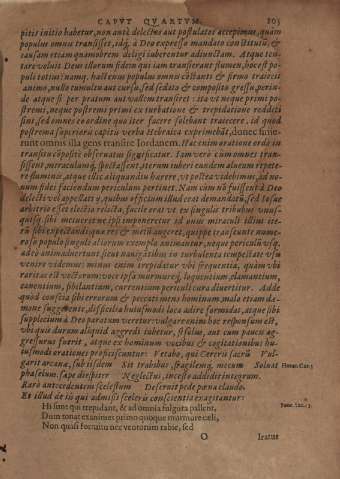 CAPVT QVARTVM. 105
pitis initio habetur, non antè delectos aut postulatos accepimus, quàm
populus omnis transisset, idq́; à Deo expresso mandato constitutū, &
causam etiam quamobrem deligi iuberentur adiunctam. Atque ten-
tare voluit Deus illorum fidem qui iam transierant flumen, hoc est po-
puli totius: namq; hactenus populus omnis constanti & firmo traiecit
animo, nullo tumultu aut cursu, sed sedato & composito gressu, perin-
de atque si per pratum aut vallem transiret: ita vt neque primi po-
stremi, neque postremi primi ex turbatione & trepidatione redditi
sint, sed omnes eo ordine quo iter facere solebant traiecere. id quod
postrema superioris capitis verba Hebraica exprimebāt, donec finie-
runt omnis illa gens transire Iordanem. Hac enim oratione ordo in
transitu cōpositè obseruatus significatur. Iam verò cùm omnes tran-
sissent, miraculumq́; spectassent, iterum iuberi eundem alueum repete-
re fluminis, atque illic aliquandiu harere, vt postea videbimus, ad no-
num fidei faciendum periculum pertinet. Nam cùm nō fuissent à Deo
delecti vel appellati ij, quibus officium illud erat demandatū, sed Iosue
arbitrio esset electio relicta, facile erat vt ex singulis tribubus vnus-
quisq; sibi metueret, ne ipsi imponeretur ad onus miraculi illius ite-
rū sibi expectandi
populo singulis aliorum exempla animantur, neque periculū
adeo animaduertunt sicut nauigātibus in turbulenta tempestate vsu
venire videmus: minus enim trepidatur vbi frequentia, quàm vbi
raritas est vectorum:
canentium, sibilantium, currentium periculi cura diuertitur. Adde
quòd conscia sibi errorum & peccati mens hominum, malè etiam de-
mone suggerente, difficilia huiusmodi loca adire formidat, atque sibi
supplicium à Deo paratum veretur
vbi quis durum aliquid aggredi iubetur, si solus, aut cum paucis ag-
gressurus fuerit, atque ex hominum vocibus & cogitationibus hu-
iusmodi orationes proficiscuntur: Vetabo, qui Cereris sacrū Vul-
garit arcanæ, sub iisdem Sit trabibus, fragilemq́; mecum Soluat
phaselum. sæpe diespiter Neglectus, incesto addidit integrum.
Raro antecedentem scelestum Deseruit pede pœna claudo.
Et illud de iis qui admissi sceleris conscientia exagitantur:
Hi sunt qui trepidant, & ad omnia fulgura pallent,
Dum tonat exanimes primo quoque murmure cæli,
Non quasi fortuitu nec ventorum rabie, sed
O Iratus
Horat. Car. 3
Iuue. 13.